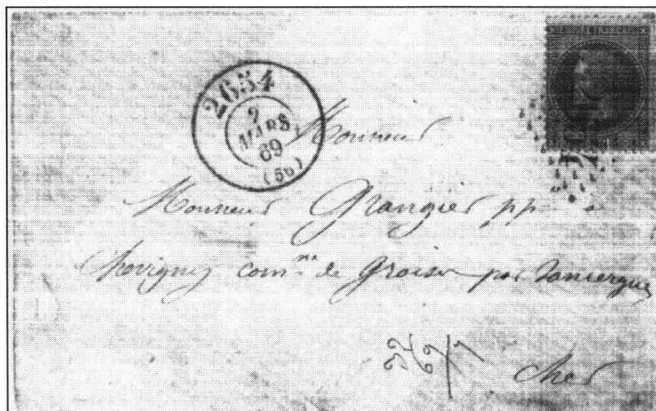 2654
2
MARS
69
(56)
Monsieur
Monsieur Grangier pp
Chevigny com.ne de Groise par Sancergues
32
69/7
Cher